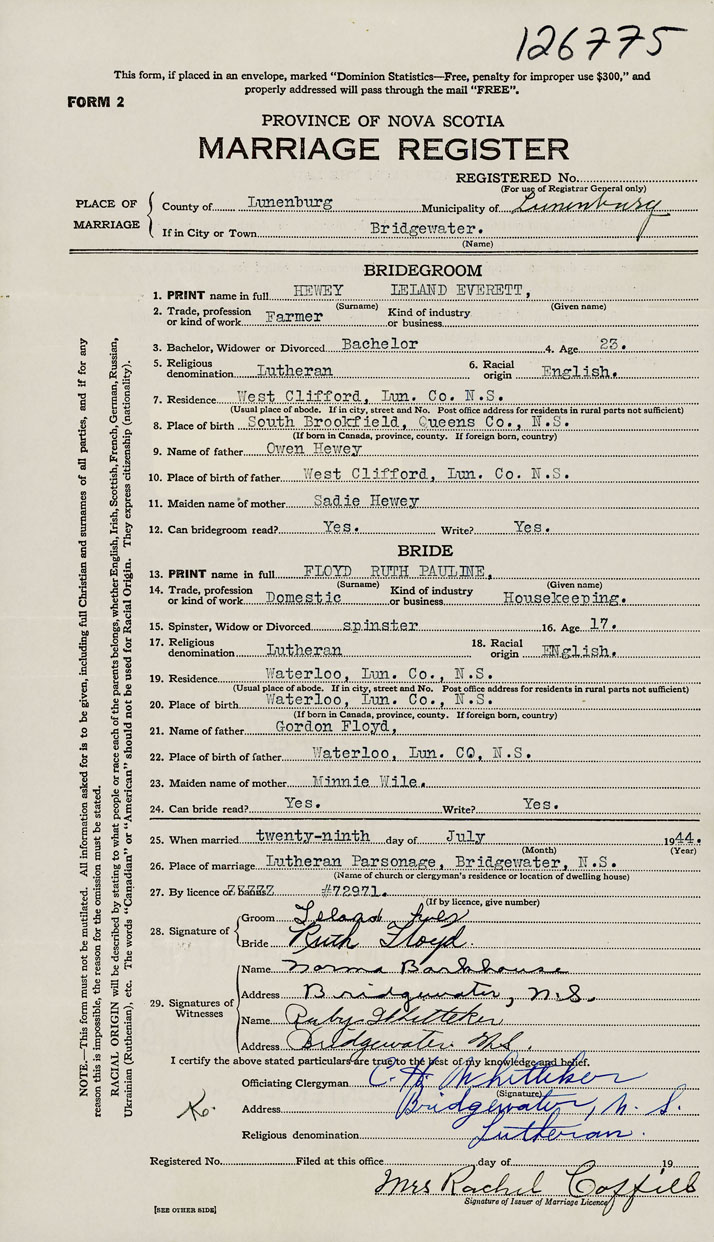 126775
This form, if placed in an envelope, marked "Dominion Statistics—Free, penalty for improper use $300," and
properly addressed will pass through the mail "FREE".
FORM 2
PROVINCE OF NOVA SCOTIA
MARRIAGE REGISTER
REGISTERED No.
(For use of Registrar General only)
PLACE OF MARRIAGE
County of Lunenburg Municipality of Lunenburg
If in City or Town Bridgewater.
(Name)
BRIDEGROOM
1. PRINT name in full HEWEY LELAND EVERETT,
(Surname) (Given name)
2. Trade, profession or kind of work Farmer Kind of industry or business
3. Bachelor, Widower or Divorced Bachelor 4. Age 23.
5. Religious denomination Lutheran 6. Racial origin English.
7. Residence West Clifford, Lun. Co. N.S.
(Usual place of abode. If in city, street and No. Post office address for residents in rural parts not sufficient)
8. Place of birth South Brookfield, Queens Co., N.S.
(If born in Canada, province, county. If foreign born, country)
9. Name of father Owen Hewey
10. Place of birth of father West Clifford, Lun. Co. N.S.
11. Maiden name of mother Sadie Hewey
12. Can bridegroom read? Yes. Write? Yes.
BRIDE
13. PRINT name in full FLOYD RUTH PAULINE,
(Surname) (Given name)
14. Trade, profession or kind of work Domestic Kind of industry or business Housekeeping.
15. Spinster, Widow or Divorced spinster 16. Age 17.
17. Religious denomination Lutheran 18. Racial origin ENglish.
19. Residence Waterloo, Lun. Co., N.S.
(Usual place of abode. If in city, street and No. Post office address for residents in rural parts not sufficient)
20. Place of birth Waterloo, Lun. Co., N.S.
(If born in Canada, province, county. If foreign born, country)
21. Name of father Gordon Floyd,
22. Place of birth of father Waterloo, Lun. CO, N.S.
23. Maiden name of mother Minnie Wile.
24. Can bride read? Yes. Write? Yes.
25. When married twenty-ninth day of July 1944.
(Month) (Year)
26. Place of marriage Lutheran Parsonage, Bridgewater, N.S.
(Name of church or clergyman's residence or location of dwelling house)
27. By licence or banns #72971.
(If by licence, give number)
28. Signature of
Groom Leland
Bride Ruth Floyd.
29. Signatures of Witnesses
Name Norma Barkhouse
Address Bridgewater, N.S.
Name Ruby Whitteker
Address Bridgewater N.S.
I certify the above stated particulars are true to the best of my knowledge and belief.
Officiating Clergyman C. H. Whitteker
(Signature)
Address Bridgewater, N. S.
Religious denomination Lutheran.
Registered No. Filed at this office day of 19
Mrs Rachel Coffill
Signature of Issuer of Marriage Licence
[SEE OTHER SIDE]
NOTE.—This form must not be mutilated. All information asked for is to be given, including full Christian and surnames of all parties, and if for any
reason this is impossible, the reason for the omission must be stated.
RACIAL ORIGIN will be described by stating to what people or race each of the parents belongs, whether English, Irish, Scottish, French, German, Russian,
Ukrainian (Ruthenian), etc. The words "Canadian" or "American" should not be used for Racial Origin. They express citizenship (nationality).